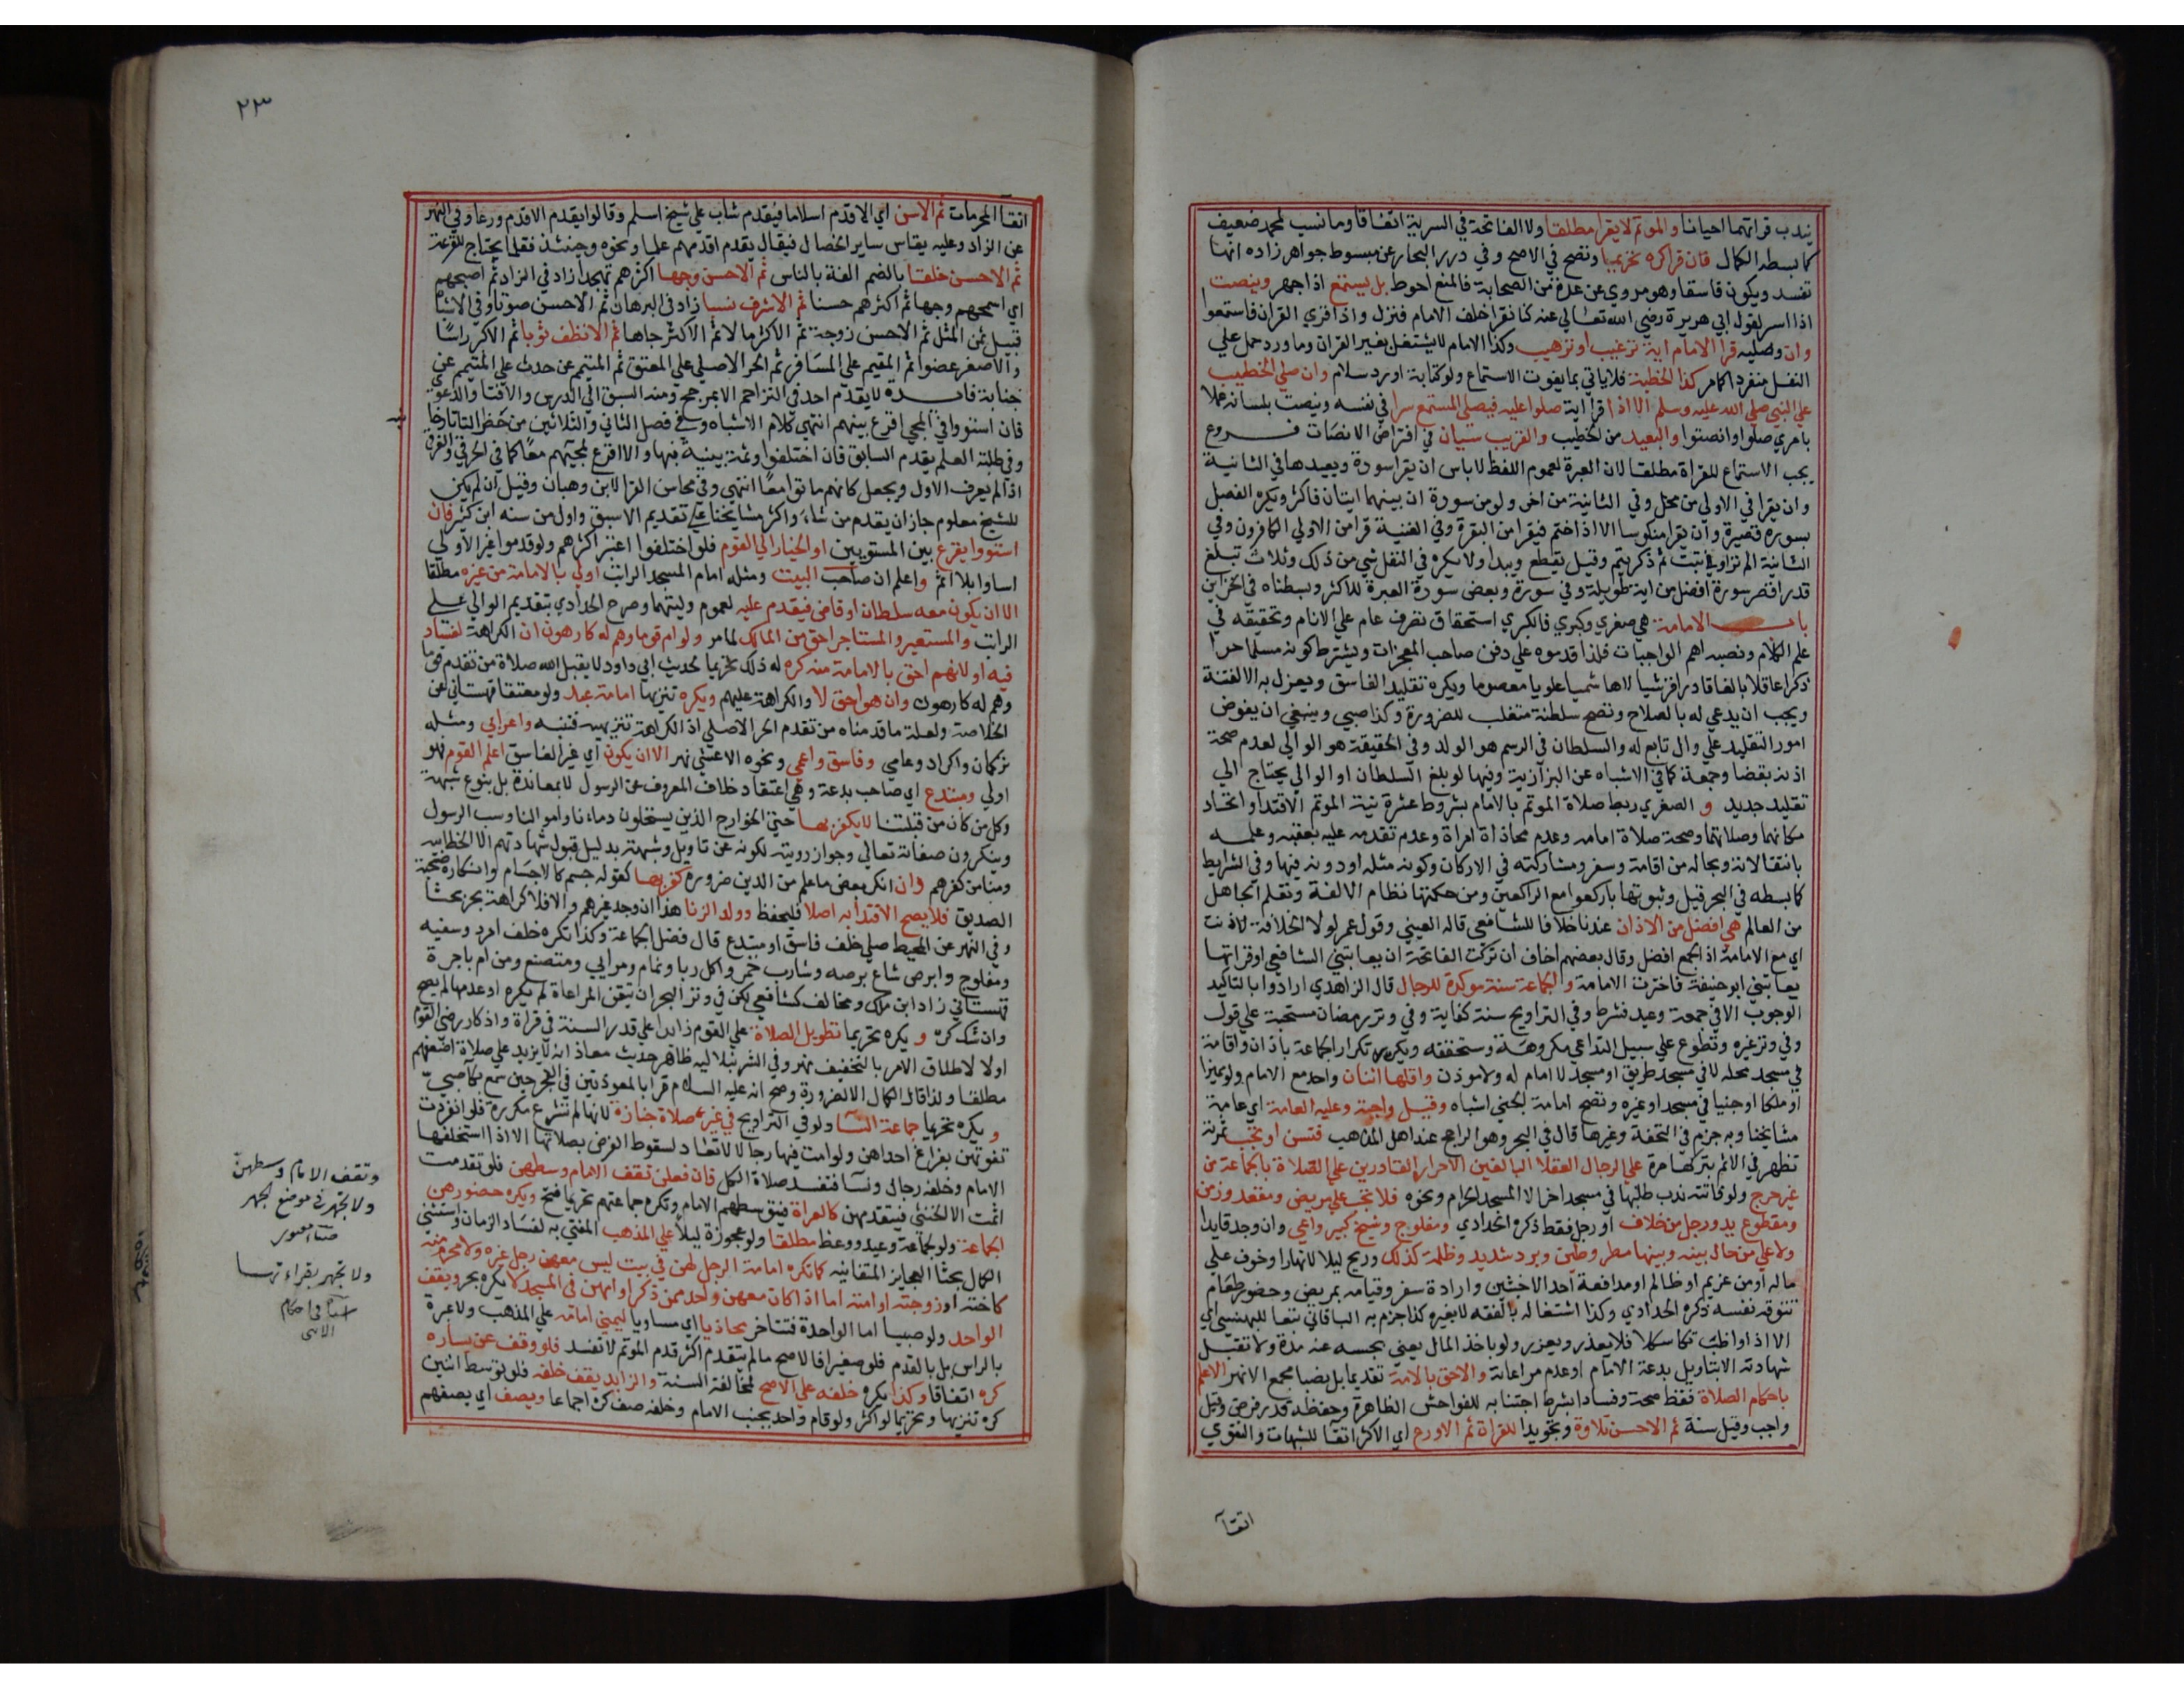 يندب قراتهما احيانا والموتم لا يقرا مطلقا ولا الفاتحة في السرية اتفاقا وما نسب لمحمد ضعيف
كما بسطه الكمال فان قرا كره تحريما وتصح في الاصح وفي درر البحار عن مبسوط جواهر زاده انها
تفسد ويكون فاسقا وهو مروي عن عدة من الصحابة فالمنع احوط بل يستمع اذا جهر وينصت
اذا اسر لقول ابي هريرة رضي الله تعالي عنه كنا نقرا خلف الامام فنزل واذا قري القران فاستمعوا
وان وصليه قرا الامام اية ترغيب او ترهيب وكذا الامام لا يشتغل بغير القران وما ورد حمل علي
النفل منفردا كما مر كذا الخطبة فلا ياتي بما يفوت الاستماع ولو كتابة او رد سلام وان صلي الخطيب
علي النبي صلي الله عليه وسلم الا اذا قرا اية صلوا عليه فيصلي المستمع سرا في نفسه وينصت بلسانه عملا
بامري صلوا وانصتوا والبعيد من الخطيب والقريب سيان في افتراض الانصات فروع
يجب الاستماع للقراة مطلقا لان العبرة لعموم اللفظ لا باس ان يقرا سورة ويعيدها في الثانية
وان يقرا في الاولي من محل وفي الثانية من اخر ولو من سورة ان بينهما ايتان فاكثر ويكره الفصل
بسورة قصيرة وان يقرا منكوسا الا اذا ختم فيقرا من البقرة وفي القنية قرا من الاولي الكافرون وفي
الثانية الم تر او تبت ثم ذكر يتم وقيل يقطع ويبدا ولا يكره في النفل شي من ذلك وثلاث تبلغ
قدر اقصر سورة افضل من اية طويلة وفي سورة وبعض سورة العبرة للاكثر وبسطناه في الخزاين
باب الامامة هي صغري وكبري فالكبري استحقاق تصرف عام علي الانام وتحقيقه في
علم الكلام ونصبه اهم الواجبات فلذا قدموه علي دفن صاحب المعجزات ويشترط كونه مسلما حرا
ذكرا عاقلا بالغا قادرا قرشيا لا هاشميا علويا معصوما ويكره تقليد الفاسق ويعزل به الا لفتنة
ويجب ان يدعي له بالصلاح وتصح سلطنة متغلب للضرورة وكذا صبي وينبغي ان يفوض
امور التقليد علي وال تابع له والسلطان في الرسم هو الولد وفي الحقيقة هو الوالي لعدم صحة
اذنه بقضا وجمعة كما في الاشباه عن البزازية وفيها لو بلغ السلطان او الوالي يحتاج الي
تقليد جديد و الصغري ربط صلاة الموتم بالامام بشروط عشرة نية الموتم الاقتدا واتحاد
مكانهما وصلاتهما وصحة صلاة امامه وعدم محاذاة امراة وعدم تقدمه عليه بعقبه وعلمه
بانتقالاته وبحاله من اقامة وسفر ومشاركته في الاركان وكونه مثله او دونه فيها وفي الشرايط
كما بسطه في البحر قيل وثبوتها باركعوا مع الراكعين ومن حكمتها نظام الالفة وتعلم الجاهل
من العالم هي افضل من الاذان عندنا خلافا للشافعي قاله العيني وقول عمر لولا الخلافة لاذنت
اي مع الامامة اذ الجمع افضل وقال بعضهم اخاف ان تركت الفاتحة ان يعاتبني الشافعي او قراتها
يعاتبني ابو حنيفة فاخترت الامامة والجماعة سنة موكدة للرجال قال الزاهدي ارادوا بالتاكيد
الوجوب الا في جمعة وعيد فشرط وفي التراويح سنة كفاية وفي وتر رمضان مستحبة علي قول
وفي وتر غيره وتطوع علي سبيل التداعي مكروهة وستحققه ويكره تكرار الجماعة باذان واقامة
في مسجد محلة لا في مسجد طريق او مسجد لا امام له ولا موذن واقلها اثنان واحد مع الامام ولو مميزا
او ملكا او جنيا في مسجد او غيره وتصح امامة الجني اشباه وقيل واجبة وعليه العامة اي عامة
مشايخنا وبه جزم في التحفة وغيرها قال في البحر وهو الراجح عند اهل المذهب فتسن او تجب ثمرته
تظهر في الاثم بتركها مرة علي الرجال العقلا البالغين الاحرار القادرين علي الصلاة بالجماعة من
غير حرج ولو فاتته ندب طلبها في مسجد اخر الا المسجد الحرام ونحوه فلا تجب علي مريض ومقعد وزمن
ومقطوع يد ورجل من خلاف او رجل فقط ذكره الحدادي ومفلوج وشيخ كبير واعمي وان وجد قايدا
ولا علي من حال بينه وبينها مطر وطين وبرد شديد وظلمة كذلك وريح ليلا لا نهارا وخوف علي
ماله او من غريم او ظالم او مدافعة احد الاخبثين وارادة سفر وقيامه بمريض وحضور طعام
تتوقه نفسه ذكره الحدادي وكذا اشتغاله بالفقه لا بغيره كذا جزم به الباقاني تبعا للبهنسي اي
الا اذا واظب تكاسلا فلا يعذر ويعزر ولو باخذ المال يعني بحبسه عنه مدة ولا تقبل
شهادته الا بتاويل بدعة الامام او عدم مراعاته والاحق بالامامة تقديما بل نصبا مجمع الانهر الاعلم
باحكام الصلاة فقط صحة وفسادا بشرط اجتنابه للفواحش الظاهرة وحفظه قدر فرض وقيل
واجب وقيل سنة ثم الاحسن تلاوة وتجويدا للقراة ثم الاورع اي الاكثر اتقا للشبهات والتقوي
اتقآ
٢٣
اتقا المحرمات ثم الاسن اي الاقدم اسلاما فيقدم شاب علي شيخ اسلم وقالوا يقدم الاقدم ورعا وفي النهر
عن الزاد وعليه يقاس ساير الخصال فيقال يقدم اقدمهم علما ونحوه وحينئذ فقلما يحتاج للقرعة
ثم الاحسن خلقا بالضم الفة بالناس ثم الاحسن وجها اكثرهم تهجدا زاد في الزاد ثم اصبحهم
اي اسمحهم وجها ثم اكثرهم حسنا ثم الاشرف نسبا زاد في البرهان ثم الاحسن صوتا وفي الاشباه
قبيل ثمن المثل ثم الاحسن زوجة ثم الاكثر مالا ثم الاكثر جاها ثم الانظف ثوبا ثم الاكبر راسا
والاصغر عضوا ثم المقيم علي المسافر ثم الحر الاصلي علي المعتق ثم المتيمم عن حدث علي المتيمم عن
جنابة فايدة لا يقدم احد في التزاحم الا بمرجح ومنه السبق الي الدرس والافتا والدعوة
فان استووا في المجي اقرع بينهم انتهي كلام الاشباه وفي فصل الثاني والثلاثين من حظر التاتارخا
نيه
وفي طلبة العلم يقدم السابق فان اختلفوا وثمة بينة فبها والا اقرع لمجيهم معا كما في الحرقي والغرقي
اذا لم يعرف الاول ويجعل كانهم ماتوا معا انتهي وفي محاسن القرا لابن وهبان وقيل ان لم يكن
للشيخ معلوم جاز ان يقدم من شاء واكثر مشايخنا علي تقديم الاسبق واول من سنه ابن كثير فان
استووا يقرع بين المستويين او الخيار الي القوم فلو اختلفوا اعتبر اكثرهم ولو قدموا غير الاولي
اساوا بلا اثم واعلم ان صاحب البيت ومثله امام المسجد الراتب اولي بالامامة من غيره مطلقا
الا ان يكون معه سلطان او قاضي فيقدم عليه لعموم ولايتهما وصرح الحدادي بتقديم الوالي علي
الراتب والمستعير والمستاجر احق من المالك لما مر ولو ام قوما وهم له كارهون ان الكراهة لفساد
فيه او لانهم احق بالامامة منه كره له ذلك تحريما لحديث ابي داود لا يقبل الله صلاة من تقدم قوما
وهم له كارهون وان هو احق لا والكراهة عليهم ويكره تنزيها امامة عبد ولو معتقا قهستاني عن
الخلاصة ولعله ما قدمناه من تقدم الحر الاصلي اذ الكراهة تنزيهية فتنبه واعرابي ومثله
تركمان واكراد وعامي وفاسق واعمي ونحوه الاعشي نهر الا ان يكون اي غير الفاسق اعلم القوم فهو
اولي ومبتدع اي صاحب بدعة وهي اعتقاد خلاف المعروف عن الرسول لا بمعاندة بل بنوع شبهة
وكل من كان من قبلتنا لا يكفر بها حتي الخوارج الذين يستحلون دماءنا واموالنا وسب الرسول
وينكرون صفاته تعالي وجواز رويته لكونه عن تاويل وشبهة بدليل قبول شهادتهم الا الخطابيه
ومنا من كفرهم وان انكر بعض ما علم من الدين ضرورة كفر بها كقوله جسم كالاجسام وانكاره صحبة
الصديق فلا يصح الاقتدا به اصلا فليحفظ وولد الزنا هذا ان وجد غيرهم والا فلا كراهة بحر بحثا
وفي النهر عن المحيط صلي خلف فاسق او مبتدع قال فضل الجماعة وكذا تكره خلف امرد وسفيه
ومفلوج وابرص شاع برصه وشارب خمر واكل ربا ونمام ومرايي ومتصنع ومن ام باجرة
قهستاني زاد ابن ملك ومخالف كشافعي لكن في وتر البحر ان تيقن المراعاة لم يكره او عدمها لم يصح
وان شك كره و يكره تحريما تطويل الصلاة علي القوم زايدا علي قدر السنة في قراة واذكار رضي القوم
او لا لاطلاق الامر بالتخفيف نهر وفي الشرنبلاليه ظاهر حديث معاذ انه لا يزيد علي صلاة اضعفهم
مطلقا ولذا قال الكمال الا لضرورة وصح انه عليه السلام قرا بالمعوذتين في الفجر حين سمع بكا صبي
و يكره تحريما جماعة النسآ ولو في التراويح في غير صلاة جنازة لانها لم تشرع مكررة فلو انفردت
تفوتهن بفراغ احداهن ولو امت فيها رجالا لا تعاد لسقوط الفرض بصلاتها الا اذا استخلفها
الامام وخلفه رجال ونسآ فتفسد صلاة الكل فان فعلن تقف الامام وسطهن فلو تقدمت
اثمت الا الخنثي فيتقدمهن كالعراة فيتوسطهم الامام وتكره جماعتهم تحريما فتح ويكره حضورهن
الجماعة ولو لجمعة وعيد ووعظ مطلقا ولو عجوزة ليلا علي المذهب المفتي به لفساد الزمان واستثني
الكمال بحثا العجايز المتفانيه كما تكره امامة الرجل لهن في بيت ليس معهن رجل غيره ولا محرم منه
كاخته او زوجته او امته اما اذا كان معهن واحد ممن ذكر او امهن في المسجد لا يكره بحر ويقف
الواحد ولو صبيا اما الواحدة فتتاخر محاذيا اي مساويا ليميني امامه علي المذهب ولا عبرة
بالراس بل بالقدم فلو صغيرا فالاصح ما لم يتقدم اكثر قدم الموتم لا تفسد فلو وقف عن يساره
كره اتفاقا وكذا يكره خلفه علي الاصح لمخالفة السنة والزايد يقف خلفه فلو توسط اثنين
كره تنزيها وتحريما لو اكثر ولو قام واحد بجنب الامام وخلفه صف كره اجماعا ويصف اي يصفهم
وتقف الامام وسطهن
ولا تجهر في موضع الجهر
ولا تجهر بقراءتها
في احكام